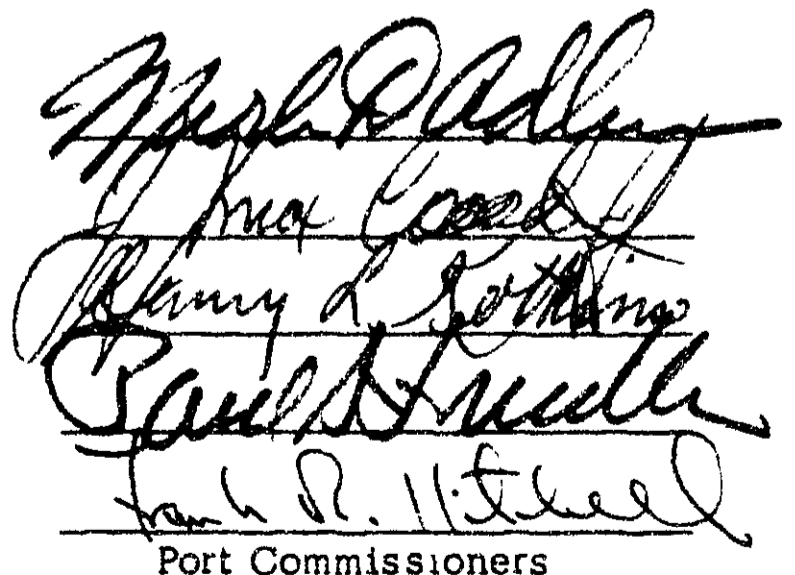 Merle D Adlum
Jack Block
Henry L. Kotkins
Paul S Friedlander
Frank R. Kitchell
Port Commissioners